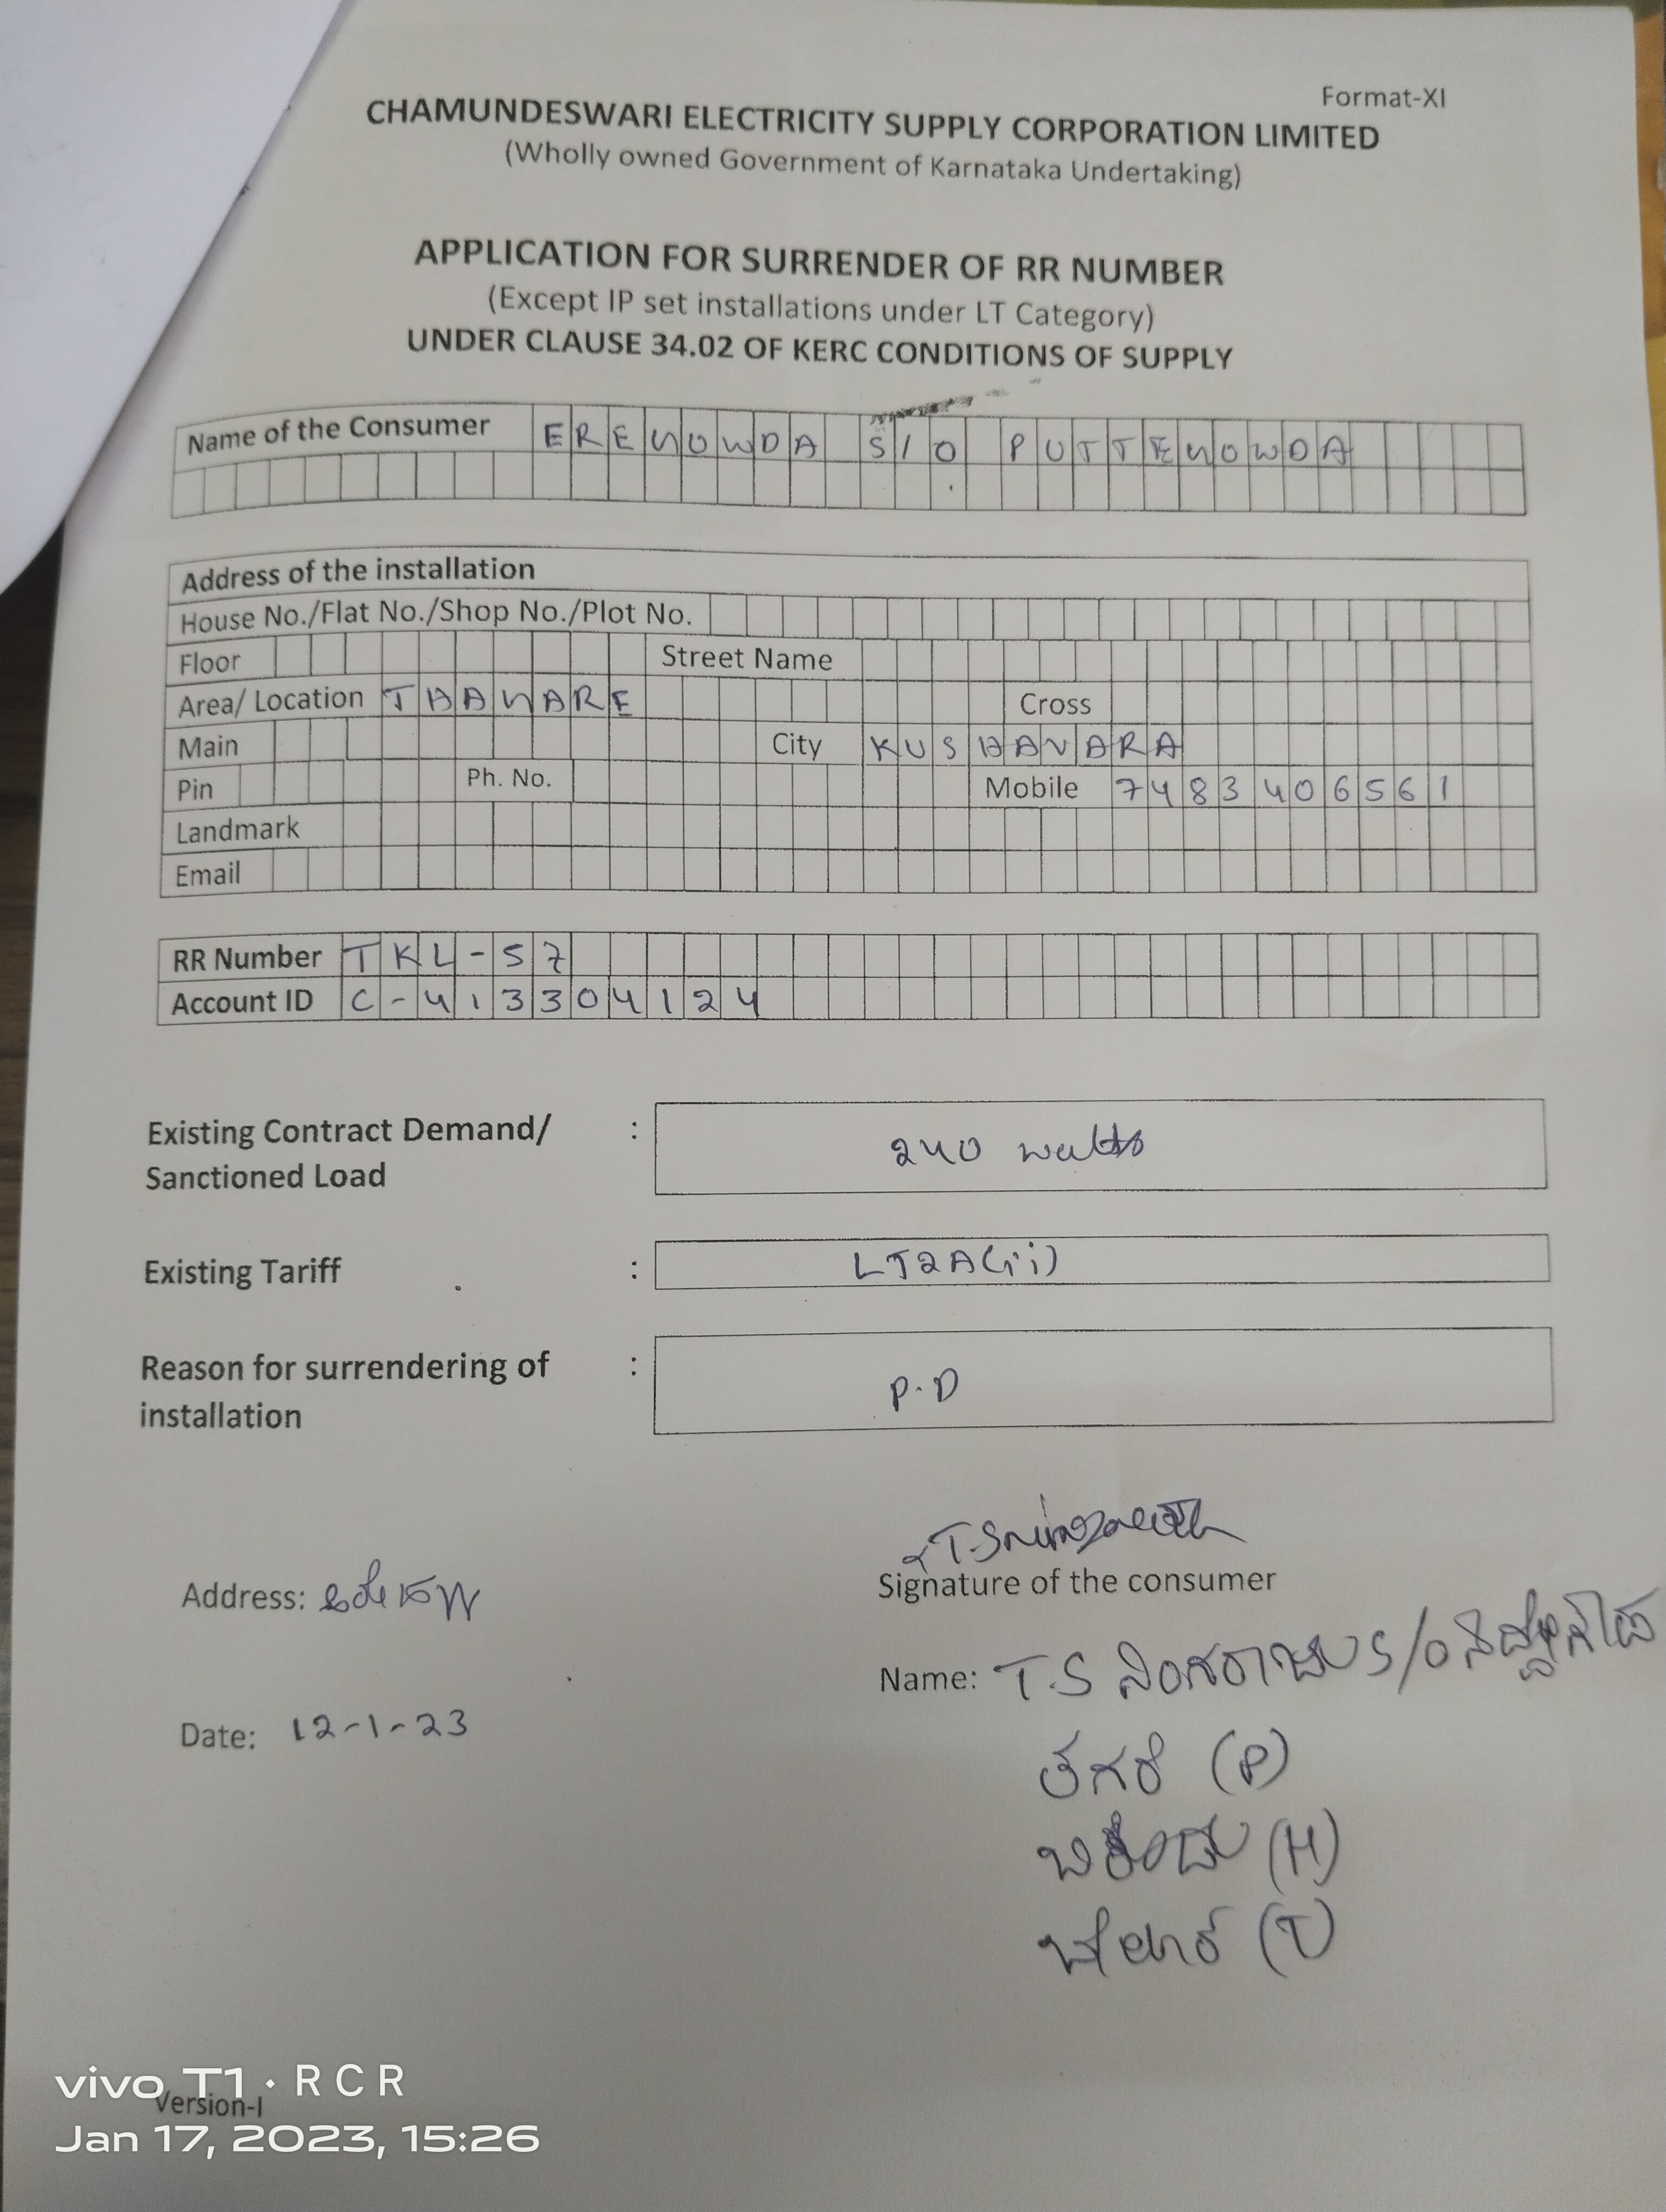 Format-XI
CHAMUNDESWARI ELECTRICITY SUPPLY CORPORATION LIMITED
(Wholly owned Government of Karnataka Undertaking)
APPLICATION FOR SURRENDER OF RR NUMBER
(Except IP set installations under LT Category)
UNDER CLAUSE 34.02 OF KERC CONDITIONS OF SUPPLY
Name of the Consumer EREGOWDA S/O PUTTEGOWDA
Address of the installation
House No./Flat No./Shop No./Plot No.
Floor Street Name
Area/ Location THAGARE Cross
Main City KUSHAVARA
Pin Ph. No. Mobile 7483406561
Landmark
Email
RR Number TKL-57
Account ID C-413304124
Existing Contract Demand/ : 240 watts
Sanctioned Load
Existing Tariff : LT2A(ii)
Reason for surrendering of : P.D
installation
Signature of the consumer
Address:
Name: T.S ನಿಂಗರಾಜು S/O
Date: 12-1-23
ತಗರೆ (P)
(H)
(T)
Version-I
vivo T1 · RCR
Jan 17, 2023, 15:26